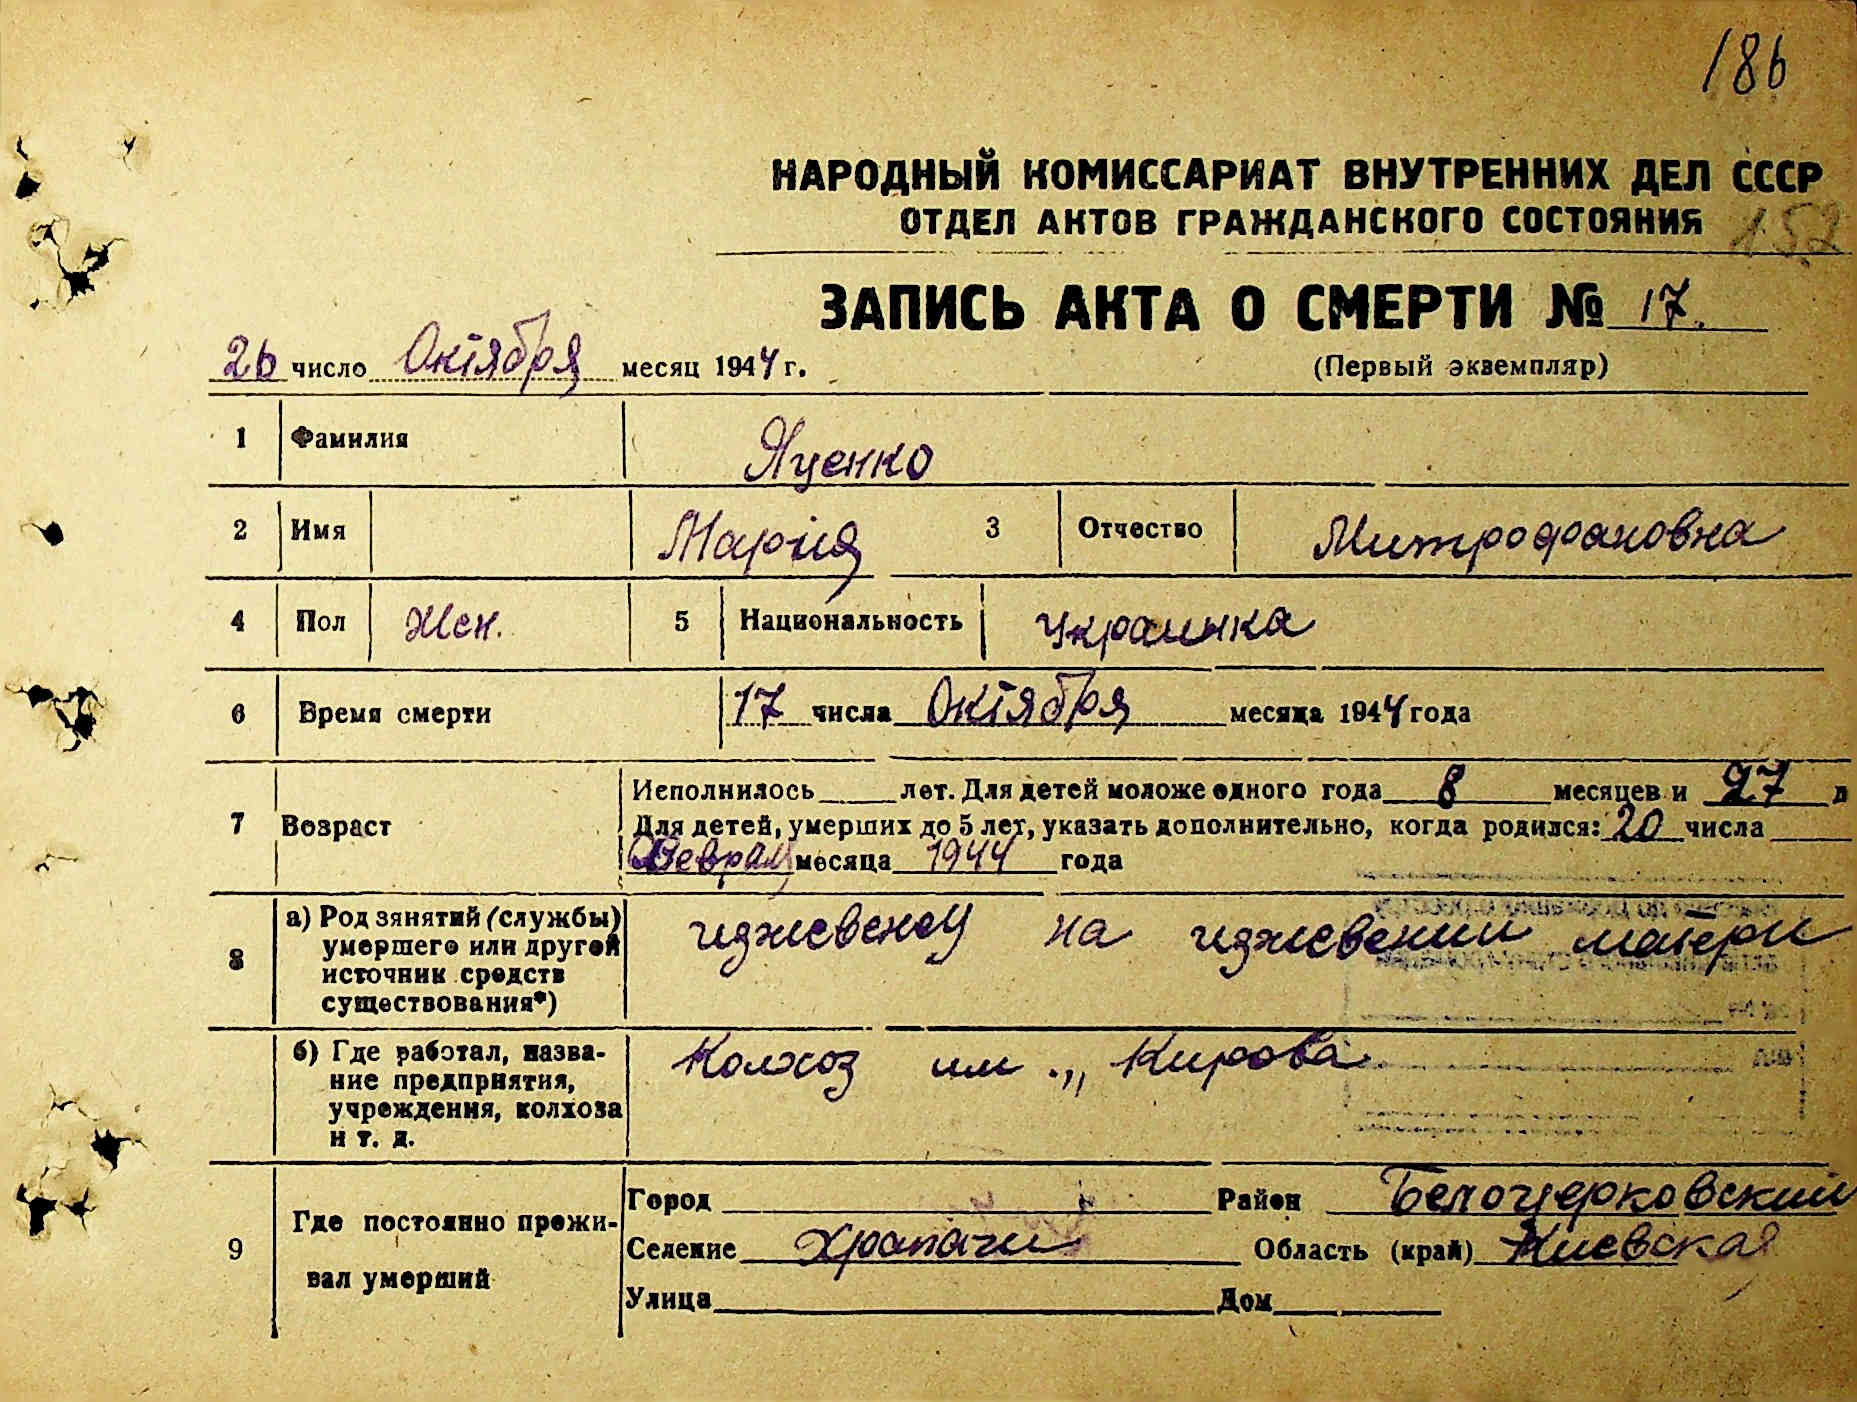 186
НАРОДНЫЙ КОМИССАРИАТ ВНУТРЕННИХ ДЕЛ СССР
ОТДЕЛ АКТОВ ГРАЖДАНСКОГО СОСТОЯНИЯ 152
ЗАПИСЬ АКТА О СМЕРТИ № 17.
26 число Октября месяц 1944 г.
(Первый экземпляр)
1 Фамилия Яценко
2 Имя Марія 3 Отчество Митрофановна
4 Пол Жен. 5 Национальность Украинка
6 Время смерти 17 числа Октября месяца 1944 года
7 Возраст Исполнилось лет. Для детей моложе одного года 8 месяцев и 27 д
Для детей, умерших до 5 лет, указать дополнительно, когда родился: 20 числа
Феврал месяца 1944 года
8 а) Род занятий (службы) умершего или другой источник средств существования*)
на матери
б) Где работал, название предприятия, учреждения, колхоза и т. д.
Колхоз им. „ Кирова
9 Где постоянно проживал умерший
Город Район Белоцерковский
Селение Храпачи Область (край) Киевская
Улица Дом